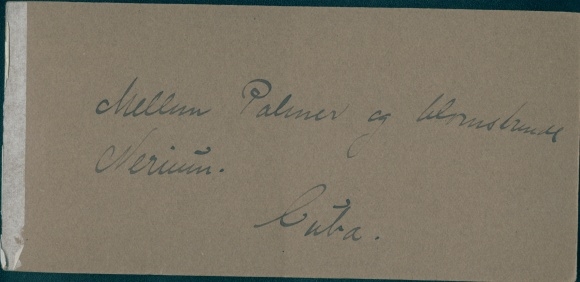 Mellem Palmer og blomstrende
Nerium.
Cuba.